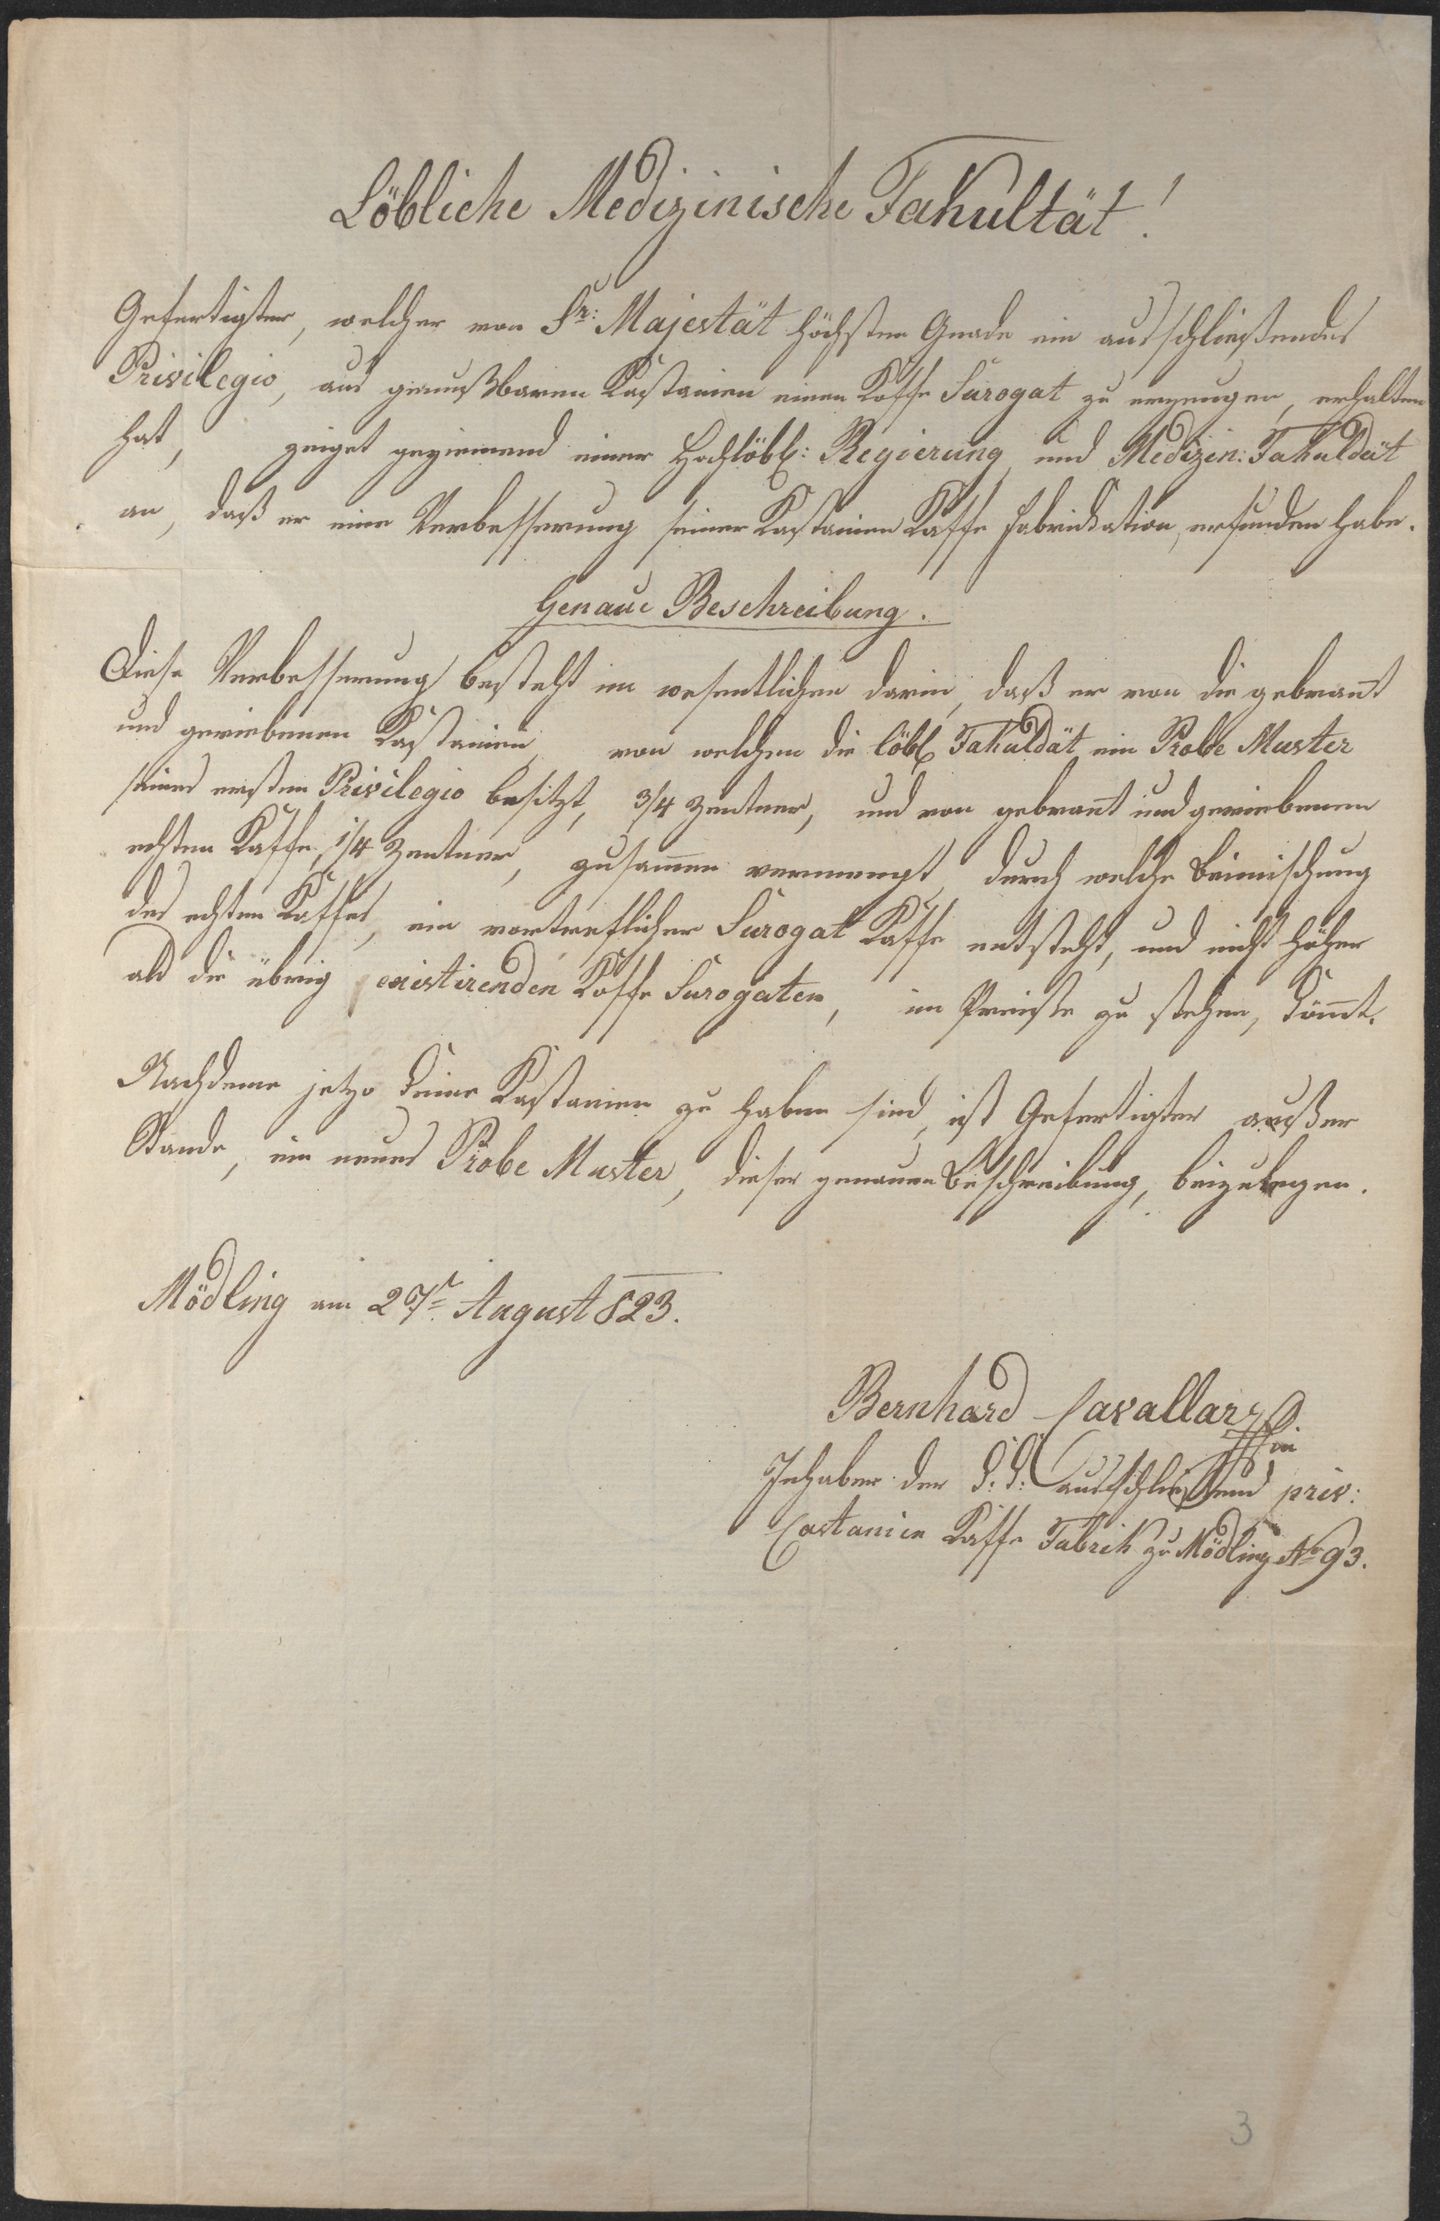 Löbliche Medizinische Fakultät!
Gefertigter, welcher von Sr: Majestät höchsten Gnade ein ausschließendes
Privilegio, aus genußbaren Kastanien einen Kaffe Surogat zu erzeugen, erhalten
hat, zeiget geziemend einer Hochlöbl: Regierung und Medizin: Fakuldät
an, daß er eine Verbesserung seiner Kastanien Kaffe Fabrikation, erfunden habe.
Genaue Beschreibung.
Diese Verbesserung besteht im wesentlichen darin, daß er von die gebrant
und geriebenen Kastanien, von welchen die löbl Fakuldät ein Probe Muster
seines ersten Privilegio besitzt, 3/4 Zentner, und von gebrant und geriebenen
echten Kaffe, 1/4 Zentner, zusamen vermengt, durch welche Beimischung
des echten Kaffes, ein vortreflicher Surogat Kaffe entsteht, und nicht höher
als die übrig existirenden Kaffe Surogaten, im Preiße zu stehen, kömt.
Nachdeme jetzo keine Kastanien zu haben sind, ist Gefertigter außer
Stande, ein neues Probe Muster, dieser genauen Beschreibung, beizulegen.
Mödling am 27t August 823.
Bernhard Cavallar
Inhaber der k: k: ausschließend priv:
Castanien Kaffe Fabrik zu Mödling No 93.
3